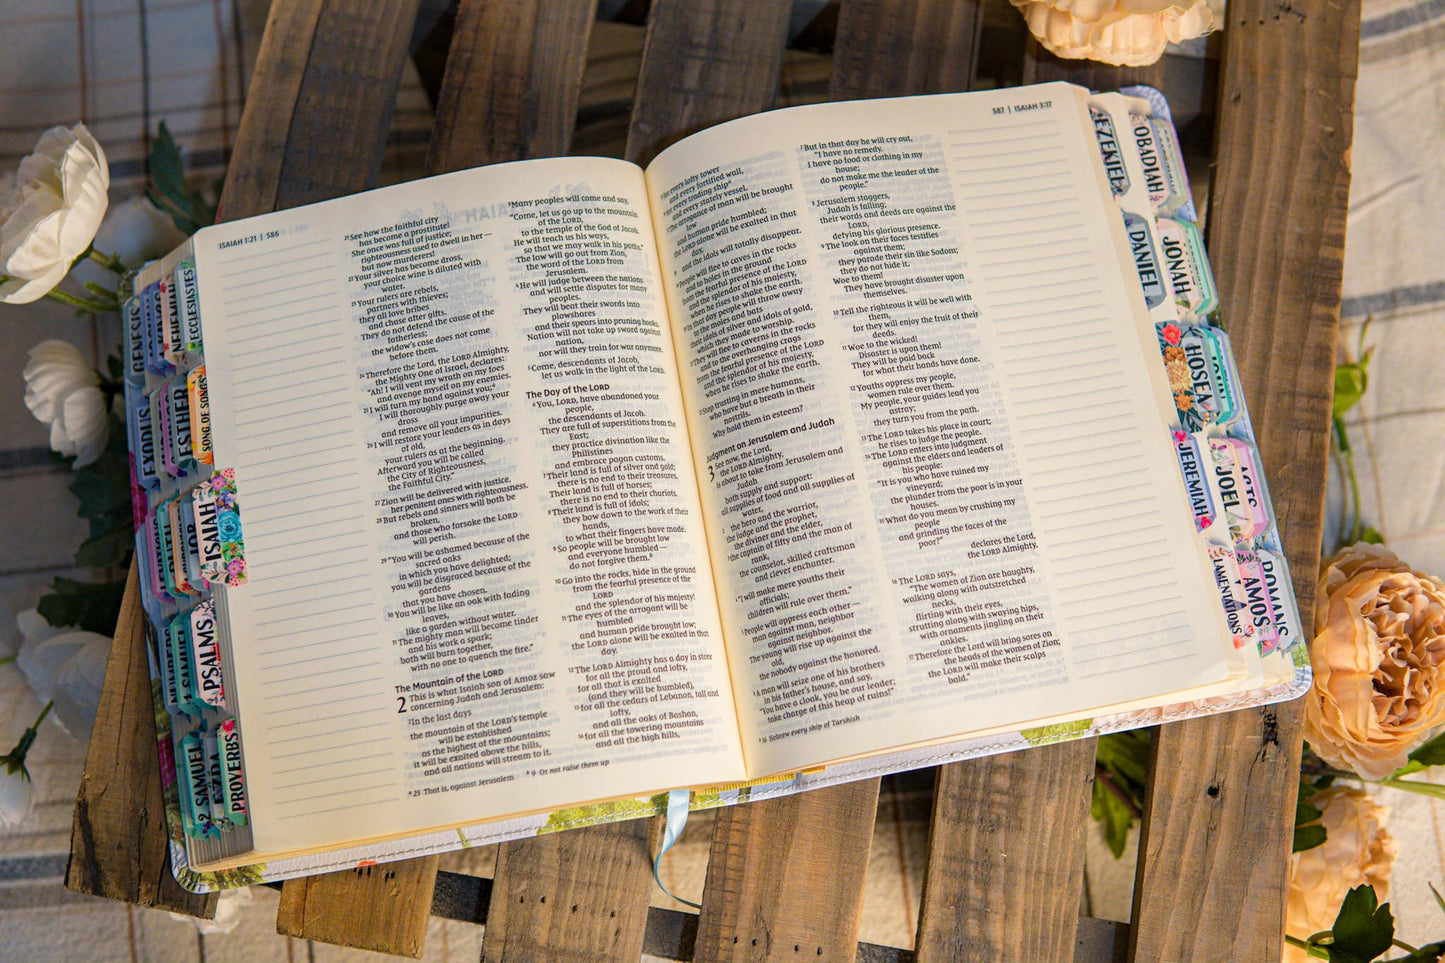 ISAIAH 1:21 | 586
21 See how the faithful city
has become a prostitute!
She once was full of justice;
righteousness used to dwell in her —
but now murderers!
22 Your silver has become dross,
your choice wine is diluted with
water.
23 Your rulers are rebels,
partners with thieves;
they all love bribes
and chase after gifts.
They do not defend the cause of the
fatherless;
the widow's case does not come
before them.
24 Therefore the Lord, the LORD Almighty,
the Mighty One of Israel, declares:
"Ah! I will vent my wrath on my foes
and avenge myself on my enemies.
25 I will turn my hand against you;a
I will thoroughly purge away your
dross
and remove all your impurities.
26 I will restore your leaders as in days
of old,
your rulers as at the beginning.
Afterward you will be called
the City of Righteousness,
the Faithful City."
27 Zion will be delivered with justice,
her penitent ones with righteousness.
28 But rebels and sinners will both be
broken,
and those who forsake the LORD
will perish.
29 "You will be ashamed because of the
sacred oaks
in which you have delighted;
you will be disgraced because of the
gardens
that you have chosen.
30 You will be like an oak with fading
leaves,
like a garden without water.
31 The mighty man will become tinder
and his work a spark;
both will burn together,
with no one to quench the fire."
The Mountain of the LORD
2 This is what Isaiah son of Amoz saw
concerning Judah and Jerusalem:
2 In the last days
the mountain of the LORD's temple
will be established
as the highest of the mountains;
it will be exalted above the hills,
and all nations will stream to it.
3 Many peoples will come and say,
"Come, let us go up to the mountain
of the LORD,
to the temple of the God of Jacob.
He will teach us his ways,
so that we may walk in his paths."
The law will go out from Zion,
the word of the LORD from
Jerusalem.
4 He will judge between the nations
and will settle disputes for many
peoples.
They will beat their swords into
plowshares
and their spears into pruning hooks.
Nation will not take up sword against
nation,
nor will they train for war anymore.
5 Come, descendants of Jacob,
let us walk in the light of the LORD.
The Day of the LORD
6 You, LORD, have abandoned your
people,
the descendants of Jacob.
They are full of superstitions from the
East;
they practice divination like the
Philistines
and embrace pagan customs.
7 Their land is full of silver and gold;
there is no end to their treasures.
Their land is full of horses;
there is no end to their chariots.
8 Their land is full of idols;
they bow down to the work of their
hands,
to what their fingers have made.
9 So people will be brought low
and everyone humbled —
do not forgive them.b
10 Go into the rocks, hide in the ground
from the fearful presence of the
LORD
and the splendor of his majesty!
11 The eyes of the arrogant will be
humbled
and human pride brought low;
the LORD alone will be exalted in that
day.
12 The LORD Almighty has a day in store
for all the proud and lofty,
for all that is exalted
(and they will be humbled),
13 for all the cedars of Lebanon, tall and
lofty,
and all the oaks of Bashan,
14 for all the towering mountains
and all the high hills,
a 25 That is, against Jerusalem
b 9 Or not raise them up
587 | ISAIAH 3:17
for every lofty tower
and every fortified wall,
for every trading ship
and every stately vessel.
The arrogance of man will be brought
low
and human pride humbled;
the LORD alone will be exalted in that
day,
and the idols will totally disappear.
People will flee to caves in the rocks
and to holes in the ground
from the fearful presence of the LORD
and the splendor of his majesty,
when he rises to shake the earth.
In that day people will throw away
to the moles and bats
their idols of silver and idols of gold,
which they made to worship.
They will flee to caverns in the rocks
and to the overhanging crags
from the fearful presence of the LORD
and the splendor of his majesty,
when he rises to shake the earth.
Stop trusting in mere humans,
who have but a breath in their
nostrils.
Why hold them in esteem?
Judgment on Jerusalem and Judah
3 See now, the Lord,
the LORD Almighty,
is about to take from Jerusalem and
Judah
both supply and support:
all supplies of food and all supplies of
water,
2 the hero and the warrior,
the judge and the prophet,
the diviner and the elder,
the captain of fifty and the man of
rank,
the counselor, skilled craftsman
and clever enchanter.
"I will make mere youths their
officials;
children will rule over them."
People will oppress each other —
man against man, neighbor
against neighbor.
The young will rise up against the
old,
the nobody against the honored.
A man will seize one of his brothers
in his father's house, and say,
"You have a cloak, you be our leader;
take charge of this heap of ruins!"
7 But in that day he will cry out,
"I have no remedy.
I have no food or clothing in my
house;
do not make me the leader of the
people."
8 Jerusalem staggers,
Judah is falling;
their words and deeds are against the
LORD,
defying his glorious presence.
9 The look on their faces testifies
against them;
they parade their sin like Sodom;
they do not hide it.
Woe to them!
They have brought disaster upon
themselves.
10 Tell the righteous it will be well with
them,
for they will enjoy the fruit of their
deeds.
11 Woe to the wicked!
Disaster is upon them!
They will be paid back
for what their hands have done.
12 Youths oppress my people,
women rule over them.
My people, your guides lead you
astray;
they turn you from the path.
13 The LORD takes his place in court;
he rises to judge the people.
14 The LORD enters into judgment
against the elders and leaders of
his people:
"It is you who have ruined my
vineyard;
the plunder from the poor is in your
houses.
15 What do you mean by crushing my
people
and grinding the faces of the
poor?"
declares the Lord,
the LORD Almighty.
16 The LORD says,
"The women of Zion are haughty,
walking along with outstretched
necks,
flirting with their eyes,
strutting along with swaying hips,
with ornaments jingling on their
ankles.
17 Therefore the Lord will bring sores on
the heads of the women of Zion;
the LORD will make their scalps
bald."
a 16 Hebrew every ship of Tarshish
GENESIS
NEHEMIAH
ECCLESIASTES
EXODUS
ESTHER
SONG OF SONGS
JOB
ISAIAH
NUMBERS
1 SAMUEL
PSALMS
2 SAMUEL
EZRA
PROVERBS
EZEKIEL
OBADIAH
DANIEL
JONAH
HOSEA
JOHN
JEREMIAH
JOEL
ACTS
LAMENTATIONS
AMOS
ROMANS